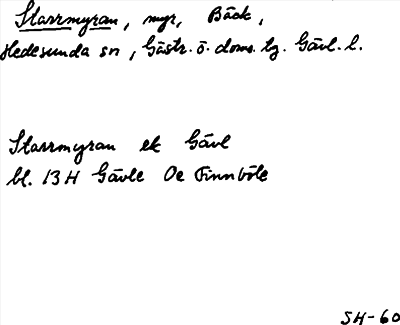 Starrmyran, myr, Bäck,
Hedesunda sn, Gästr. ö. doms. tg. Gävl. l.
Starrmyran ek Gävl
bl. 13 H Gävle Oe Finnböle
SH-60